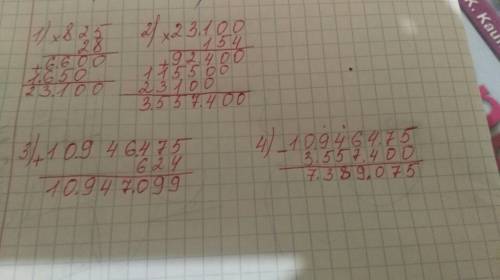 1) × 825
28
+ 6600
1650
23.100
2) × 23.100
154
+ 92.400
115500
23100
3.557.400
3) + 10.946.475
624
10.947.099
4) - 10.946.475
3.557.400
7.389.075